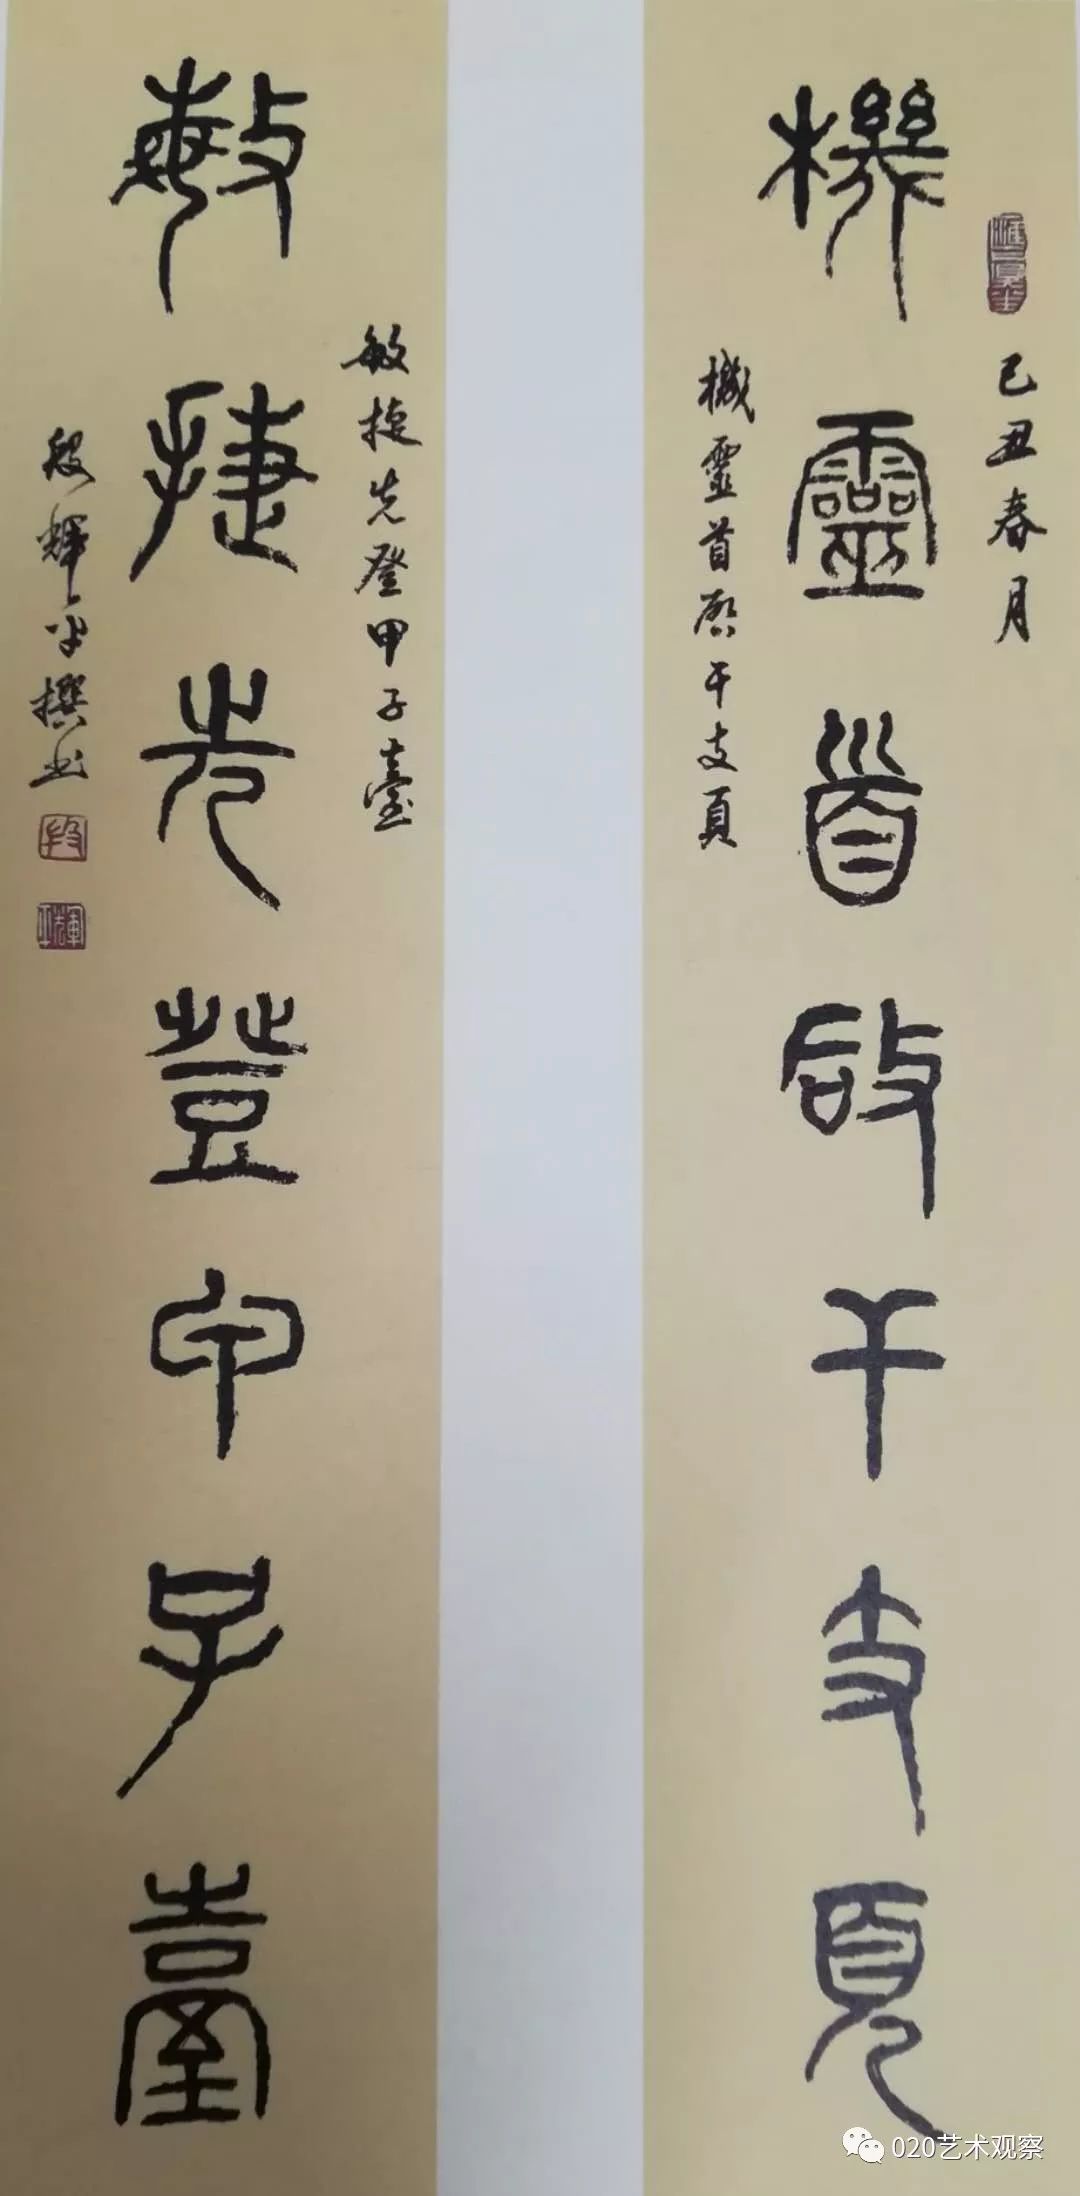 己丑春月
機靈首啟干支頁
機靈首啟干支頁
敏捷先登甲子臺
敏捷先登甲子臺
段輝平撰書
020艺术观察